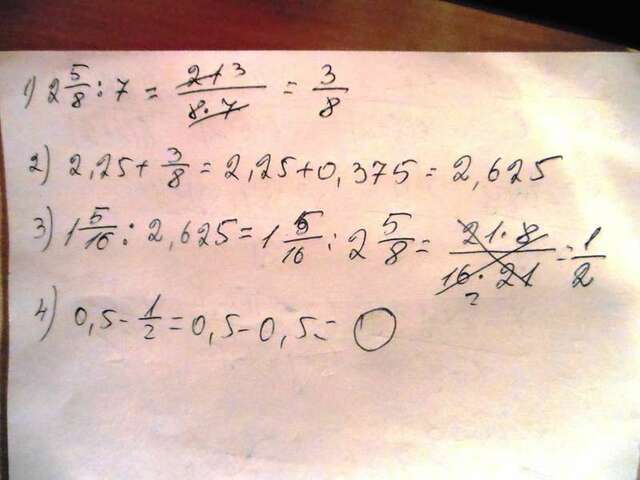 1) 2 5/8 : 7 = 21 3/8·7 = 3/8
2) 2,25 + 3/8 = 2,25 + 0,375 = 2,625
3) 1 5/16 : 2,625 = 1 5/16 : 2 5/8 = 21·8/16·21 2 = 1/2
4) 0,5 - 1/2 = 0,5 - 0,5 = 0